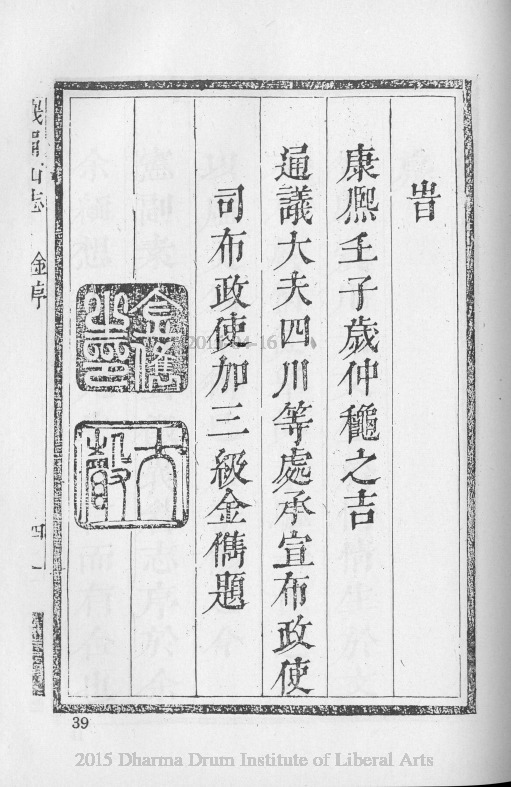 旹
康熈壬子歲仲龝之吉
通議大夫四川等處承宣布政使
司布政使加三級金儁題
金儁
大
峨眉山志
金序
四
39
2015-04-16
2015 Dharma Drum Institute of Liberal Arts